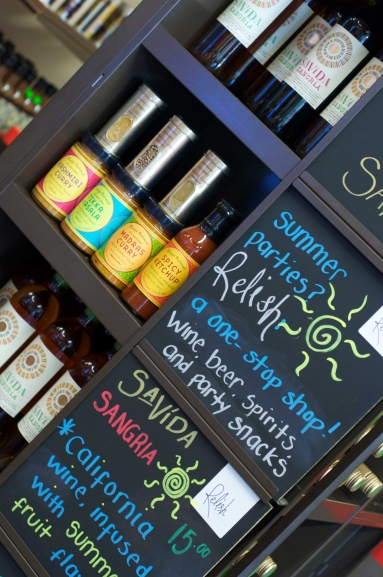 SAVIDA
SAVIDA
SANGRIA
KASHMIRI
CURRY
TIKKA
MASALA
MADRAS
CURRY
SPICY
KETCHUP
SAVIDA
SAVIDA
Summer
parties?
Relish
a one stop shop!
wine, beer, spirits,
and party snacks
SAVIDA
SANGRIA
*California
wine, infused
with summer
fruit
15.00
Relish